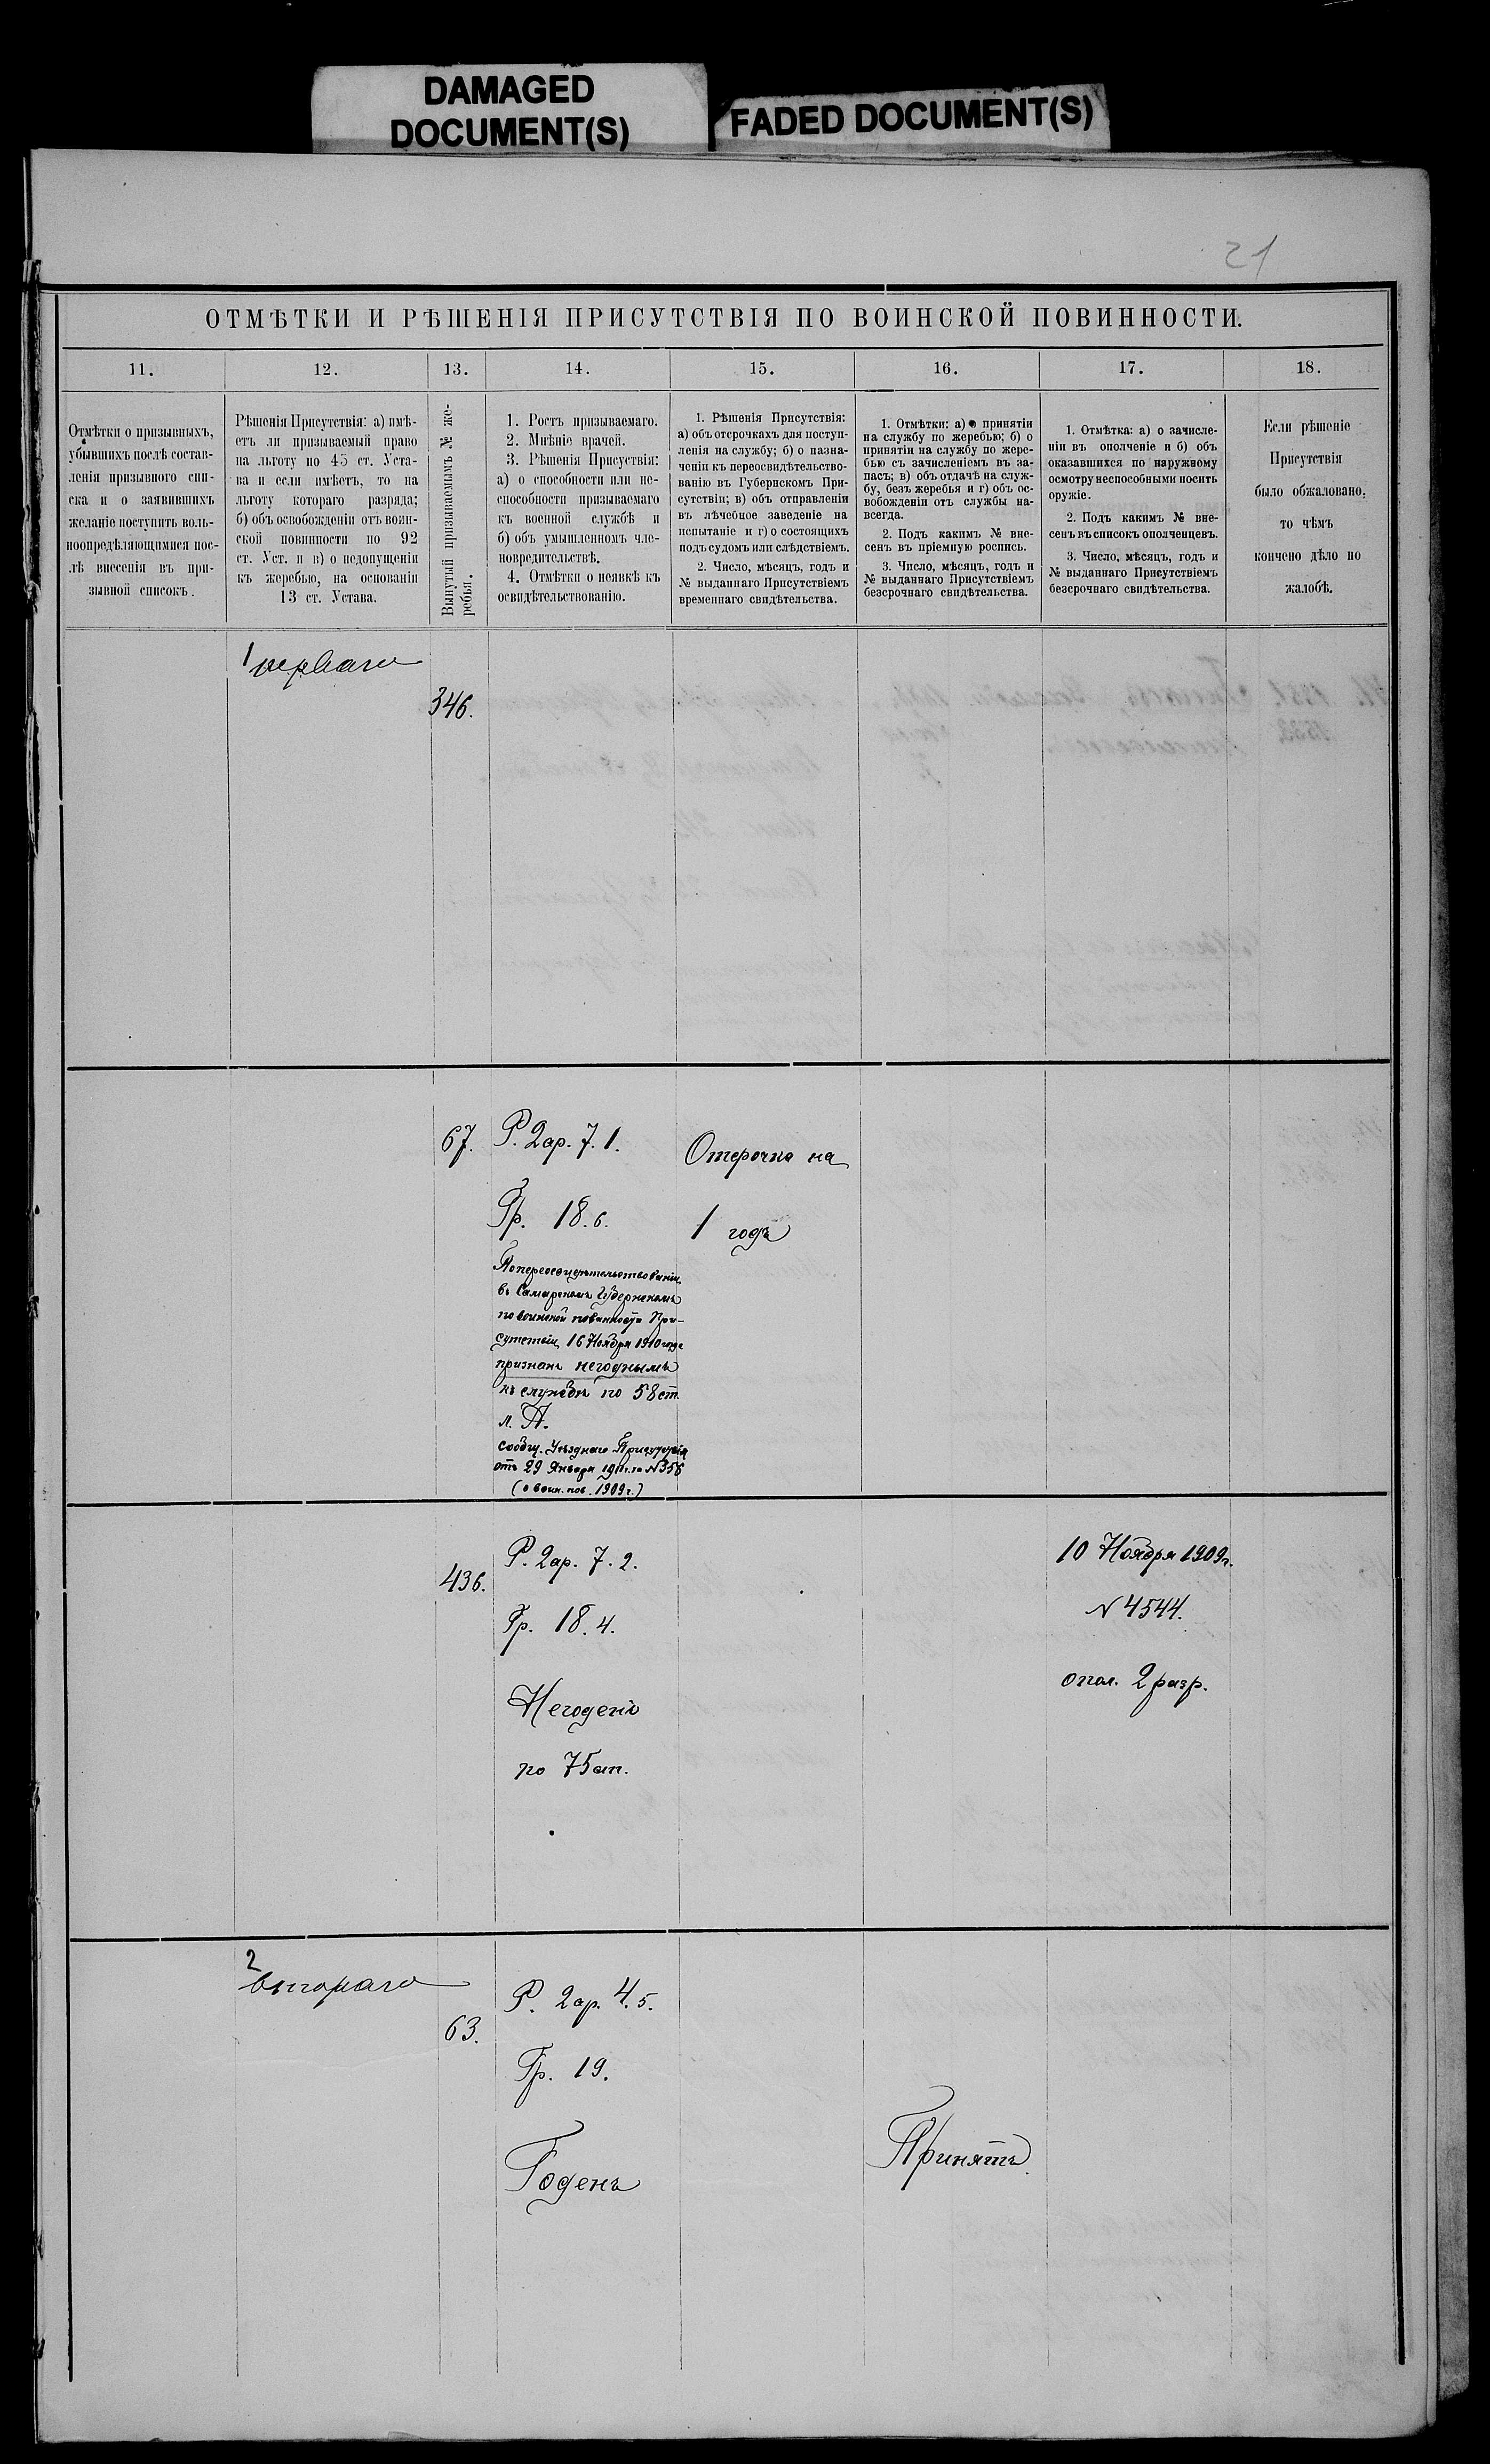 DAMAGED
DOCUMENT(S)
FADED DOCUMENT(S)
21
ОТМѢТКИ И РѢШЕНІЯ ПРИСУТСТВІЯ ПО ВОИНСКОЙ ПОВИННОСТИ.
11.
12.
13.
14.
15.
16.
17.
18.
Отмѣтки о призывныхъ,
убывшихъ послѣ состав-
ленія призывного спи-
ска и о заявившихъ
желаніе поступить воль-
ноопредѣляющимися пос-
лѣ внесенія въ при-
зывной списокъ.
Рѣшенія Присутствія: а) имѣ-
етъ ли призываемый право
на льготу по 45 ст. Уста-
ва и если имѣетъ, то на
льготу котораго разряда;
б) объ освобожденіи отъ воин-
ской повинности по 92
ст. Уст. и в) о недопущеніи
къ жеребью, на основаніи
13 ст. Устава.
Вынутый призываемымъ № же-
ребья.
1. Ростъ призываемаго.
2. Мнѣніе врачей.
3. Рѣшенія Присуствія:
а) о способности или не-
способности призываемаго
къ военной службѣ и
б) объ умышленномъ чле-
новредительствѣ.
4. Отмѣтки о неявкѣ къ
освидѣтельствованію.
1. Рѣшенія Присутствія:
а) объ отсрочкахъ для поступ-
ленія на службу; б) о назна-
ченіи къ переосвидѣтельство-
ванію въ Губернскомъ При-
сутствіи; в) объ отправленіи
въ лѣчебное заведеніе на
испытаніе и г) о состоящихъ
подъ судомъ или слѣдствіемъ.
2. Число, мѣсяцъ, годъ и
№ выданнаго Присутствіемъ
временнаго свидѣтельства.
1. Отмѣтки: а) о принятіи
на службу по жеребью; б) о
принятіи на службу по жере-
бью съ зачисленіемъ въ за-
пасъ; в) объ отдачѣ на служ-
бу, безъ жеребья и г) объ ос-
вобожденіи отъ службы на-
всегда.
2. Подъ какимъ № вне-
сенъ въ пріемную роспись.
3. Число, мѣсяцъ, годъ и
№ выданнаго Присутствіемъ
безсрочнаго свидѣтельства.
1. Отмѣтка: а) о зачисле-
ніи въ ополченіе и б) объ
оказавшихся по наружному
осмотру неспособными носить
оружіе.
2. Подъ какимъ № вне-
сенъ въ списокъ ополченцевъ.
3. Число, мѣсяцъ, годъ и
№ выданнаго Присутствіемъ
безсрочнаго свидѣтельства.
Если рѣшеніе
Присутствія
было обжаловано,
то чѣмъ
кончено дѣло по
жалобѣ.
1
перваго
346.
67.
Р. 2ар. 7.1.
Гр. 18.6.
По переосвидѣтельствованіи
въ Самарскомъ Губернскомъ
по воинской повинности При-
сутствіи 16 Ноября 1910 года
признанъ негоднымъ
къ службѣ по 58 ст.
л. А.
сообщ. Уѣзднаго Присутствія
отъ 29 Января 1911 г. за N 356
(о воин. пов. 1909 г.)
Отсрочка на
1 годъ
436.
Р. 2ар. 7.2.
Гр. 18.4.
Негоденъ
по 75 ст.
10 Ноября 1909 г.
N 4544.
опол. 2 разр.
2
второго
63.
Р. 2ар. 4.5.
Гр. 19.
Годенъ
Принятъ